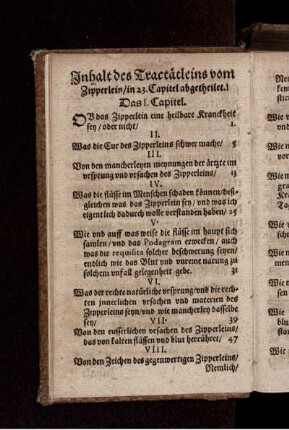 Inhalt des Tractätleins vom
Zipperlein/in 23. Capitel abgetheilet.
Das I. Capitel.
OB das Zipperlein eine heilbare Kranckheit
sey/oder nicht/ 1.
II.
Was die Cur des Zipperleins schwer mache/ 5
III.
Von den mancherleyen meynungen der ärtzte im
vrsprung vnd vrsachen des Zipperleins/ 13
IV.
Was die flüsse im Menschen schaden können/deß-
gleichen was das Zipperlein sey/ vnd was ich
eigentlich dadurch wolle verstanden haben/ 25
V.
Wie vnd auff was weise die flüsse im haupt sich
samlen/vnd das Podagram erwecken/ auch
was die requisita solcher beschwerung seyen/
endlich wie das Blut vnd vnreine narung zu
solchem vnfall gelegenheit gebe. 31
VI.
Was der rechte natürliche vrsprung/vnd die rech-
ten innerlichen vrsachen vnd materien des
Zipperleins seyn/vnd wie mancherley dasselbe
sey/ 39
VII.
Von den eusserlichen vrsachen des Zipperleins/
das von kalten flüssen vnd blut herrühret/ 47
VIII.
Von den Zeichen des gegenwertigen Zipperleins/
Nemlich/